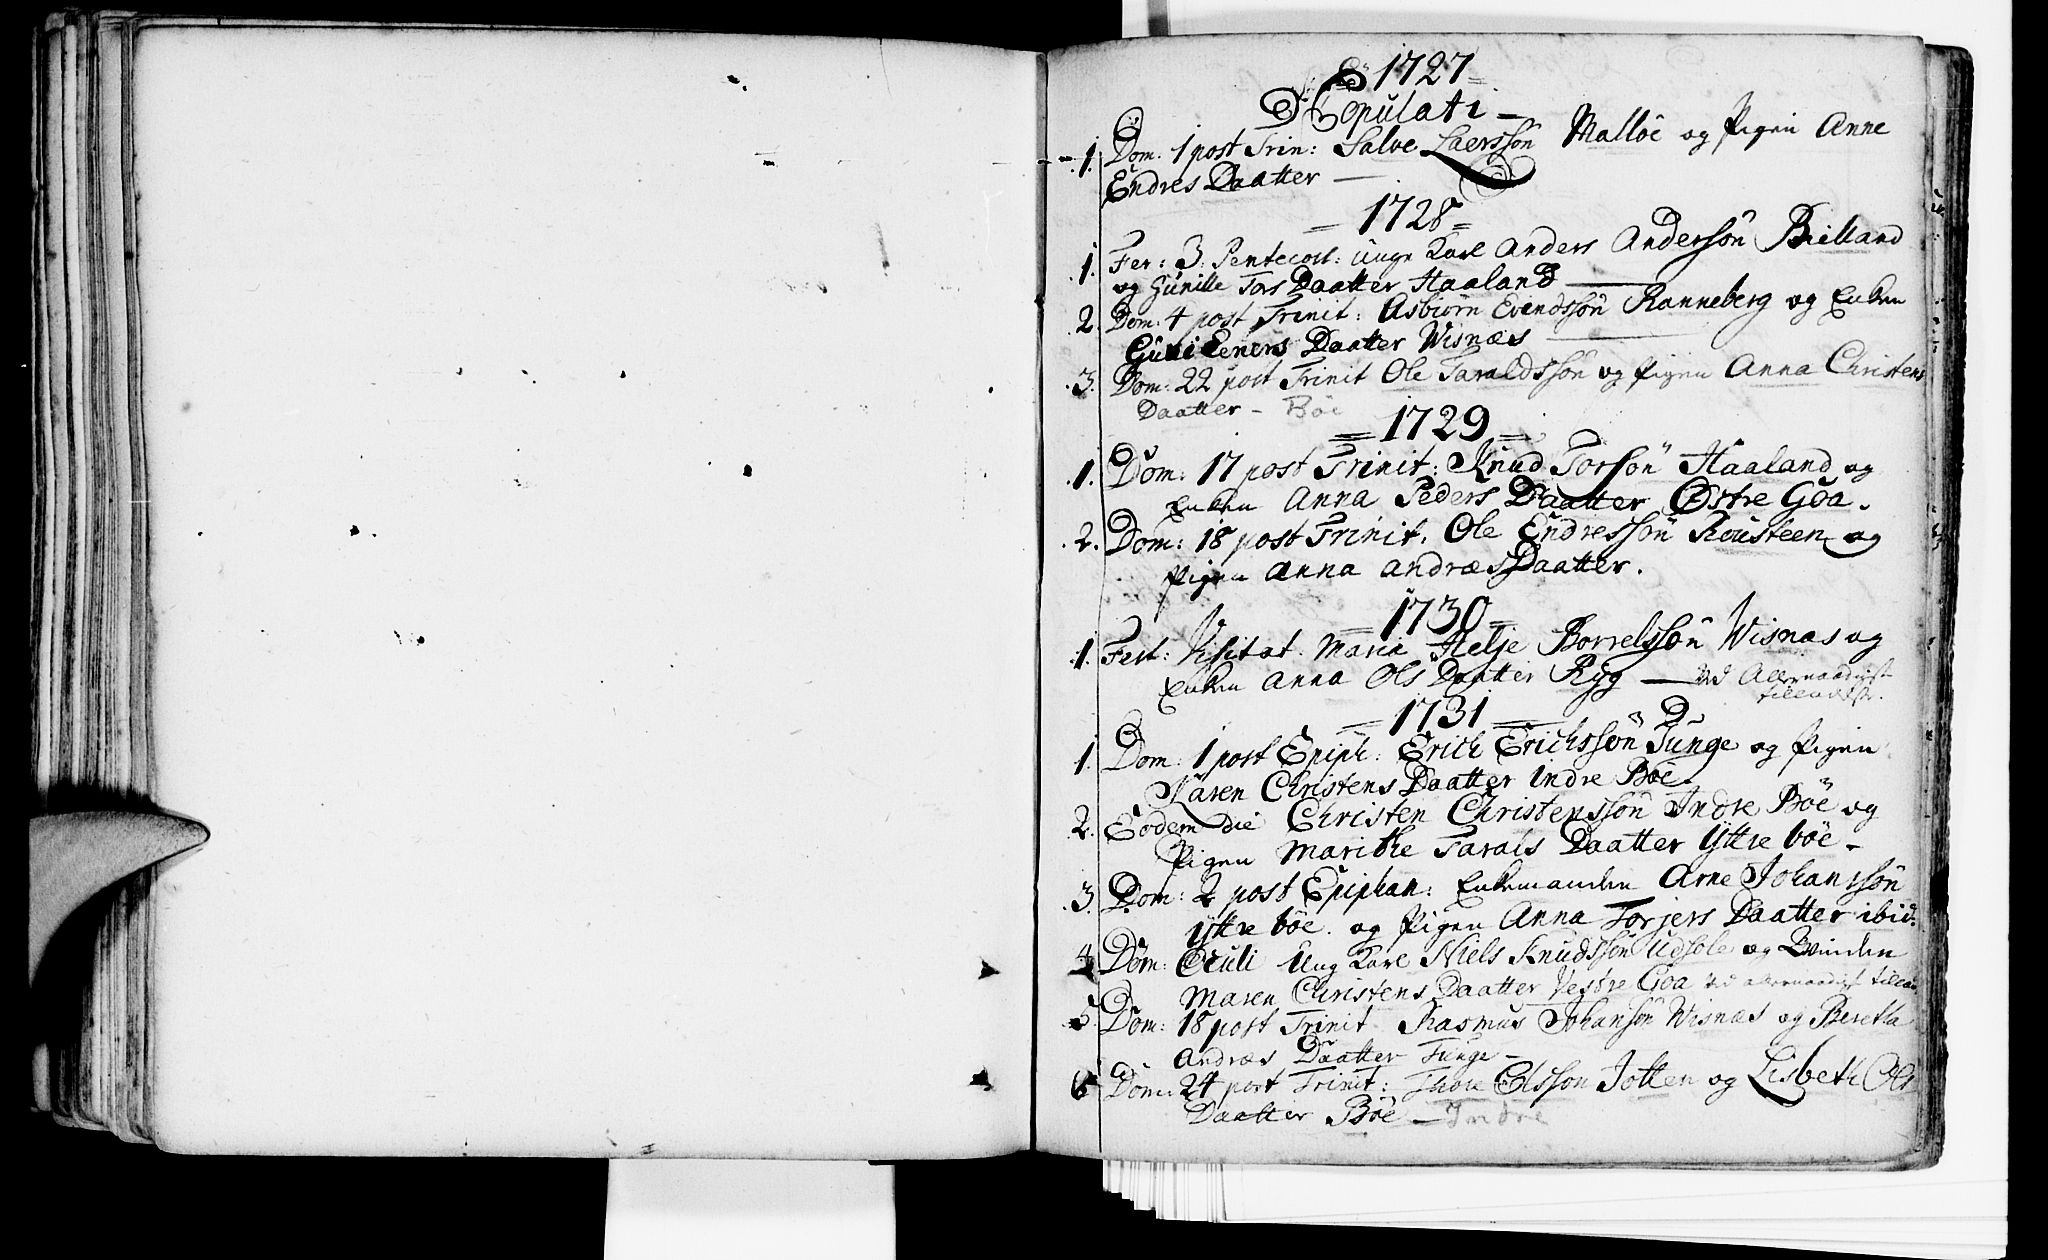 1727
Copulati
.1. Dom: 1 post Trin: Salve Laerssøn Malløe og Pigen Anne
Endres Daatter
1728
.1. Fer: 3. Pentecost: unge Karl Anders Andersøn Bielland
og Gunille Tors Daatter Haaland
2. Dom: 4 post Trinit: Asbiørn Evendssøn Ranneberg og Enken
Guri Eeners Daatter Wisnæs
.3. Dom: 22 post Trinit Ole Taraldssøn og Pigen Anna Christens
Daatter - Bøe
1729
.1. Dom: 17 post Trinit: Knud Torsøn Haaland og
Enken Anna Peders Daatter Østre Goa.
.2. Dom: 18 post Trinit. Ole Endressøn Rousteen og
Pigen Anna AndræsDaatter.
1730
.1. Fest: Visitat. Maria Helje Borrelssøn Wisnæs og
Enken Anna Ols Daatter Ryg — ved Allernaadigst
tilladelse.
1731
1. Dom: 1 post Epiph: Erich Erichssøn Tunge og Pigen
Karen Christens Daatter Indre Bøe.
2. Eodem Die Christen Christenssøn Indre Bøe og
Pigen Marithe Tarais Daatter Yttre bøe -
.3. Dom: 2 post Epiphan: Enkemanden Arne Johanssøn
yttre bøe. og Pigen Anna Torjers Daatter ibid.
4 Dom: Oculi Ung Karl Niels Knudssøn Udsole og Qvinden
Maren Christens Daatter Vestre Goa ved allernaadigst
5. Dom: 18 post Trinit. Rasmus Johansøn Wisnæs og Beretha
Andræs Daatter Tunge -
6 Dom: 24 post Trinit: Thore Olssøn Jotten og Lisbeth Ols
Daatter Bøe - Indre